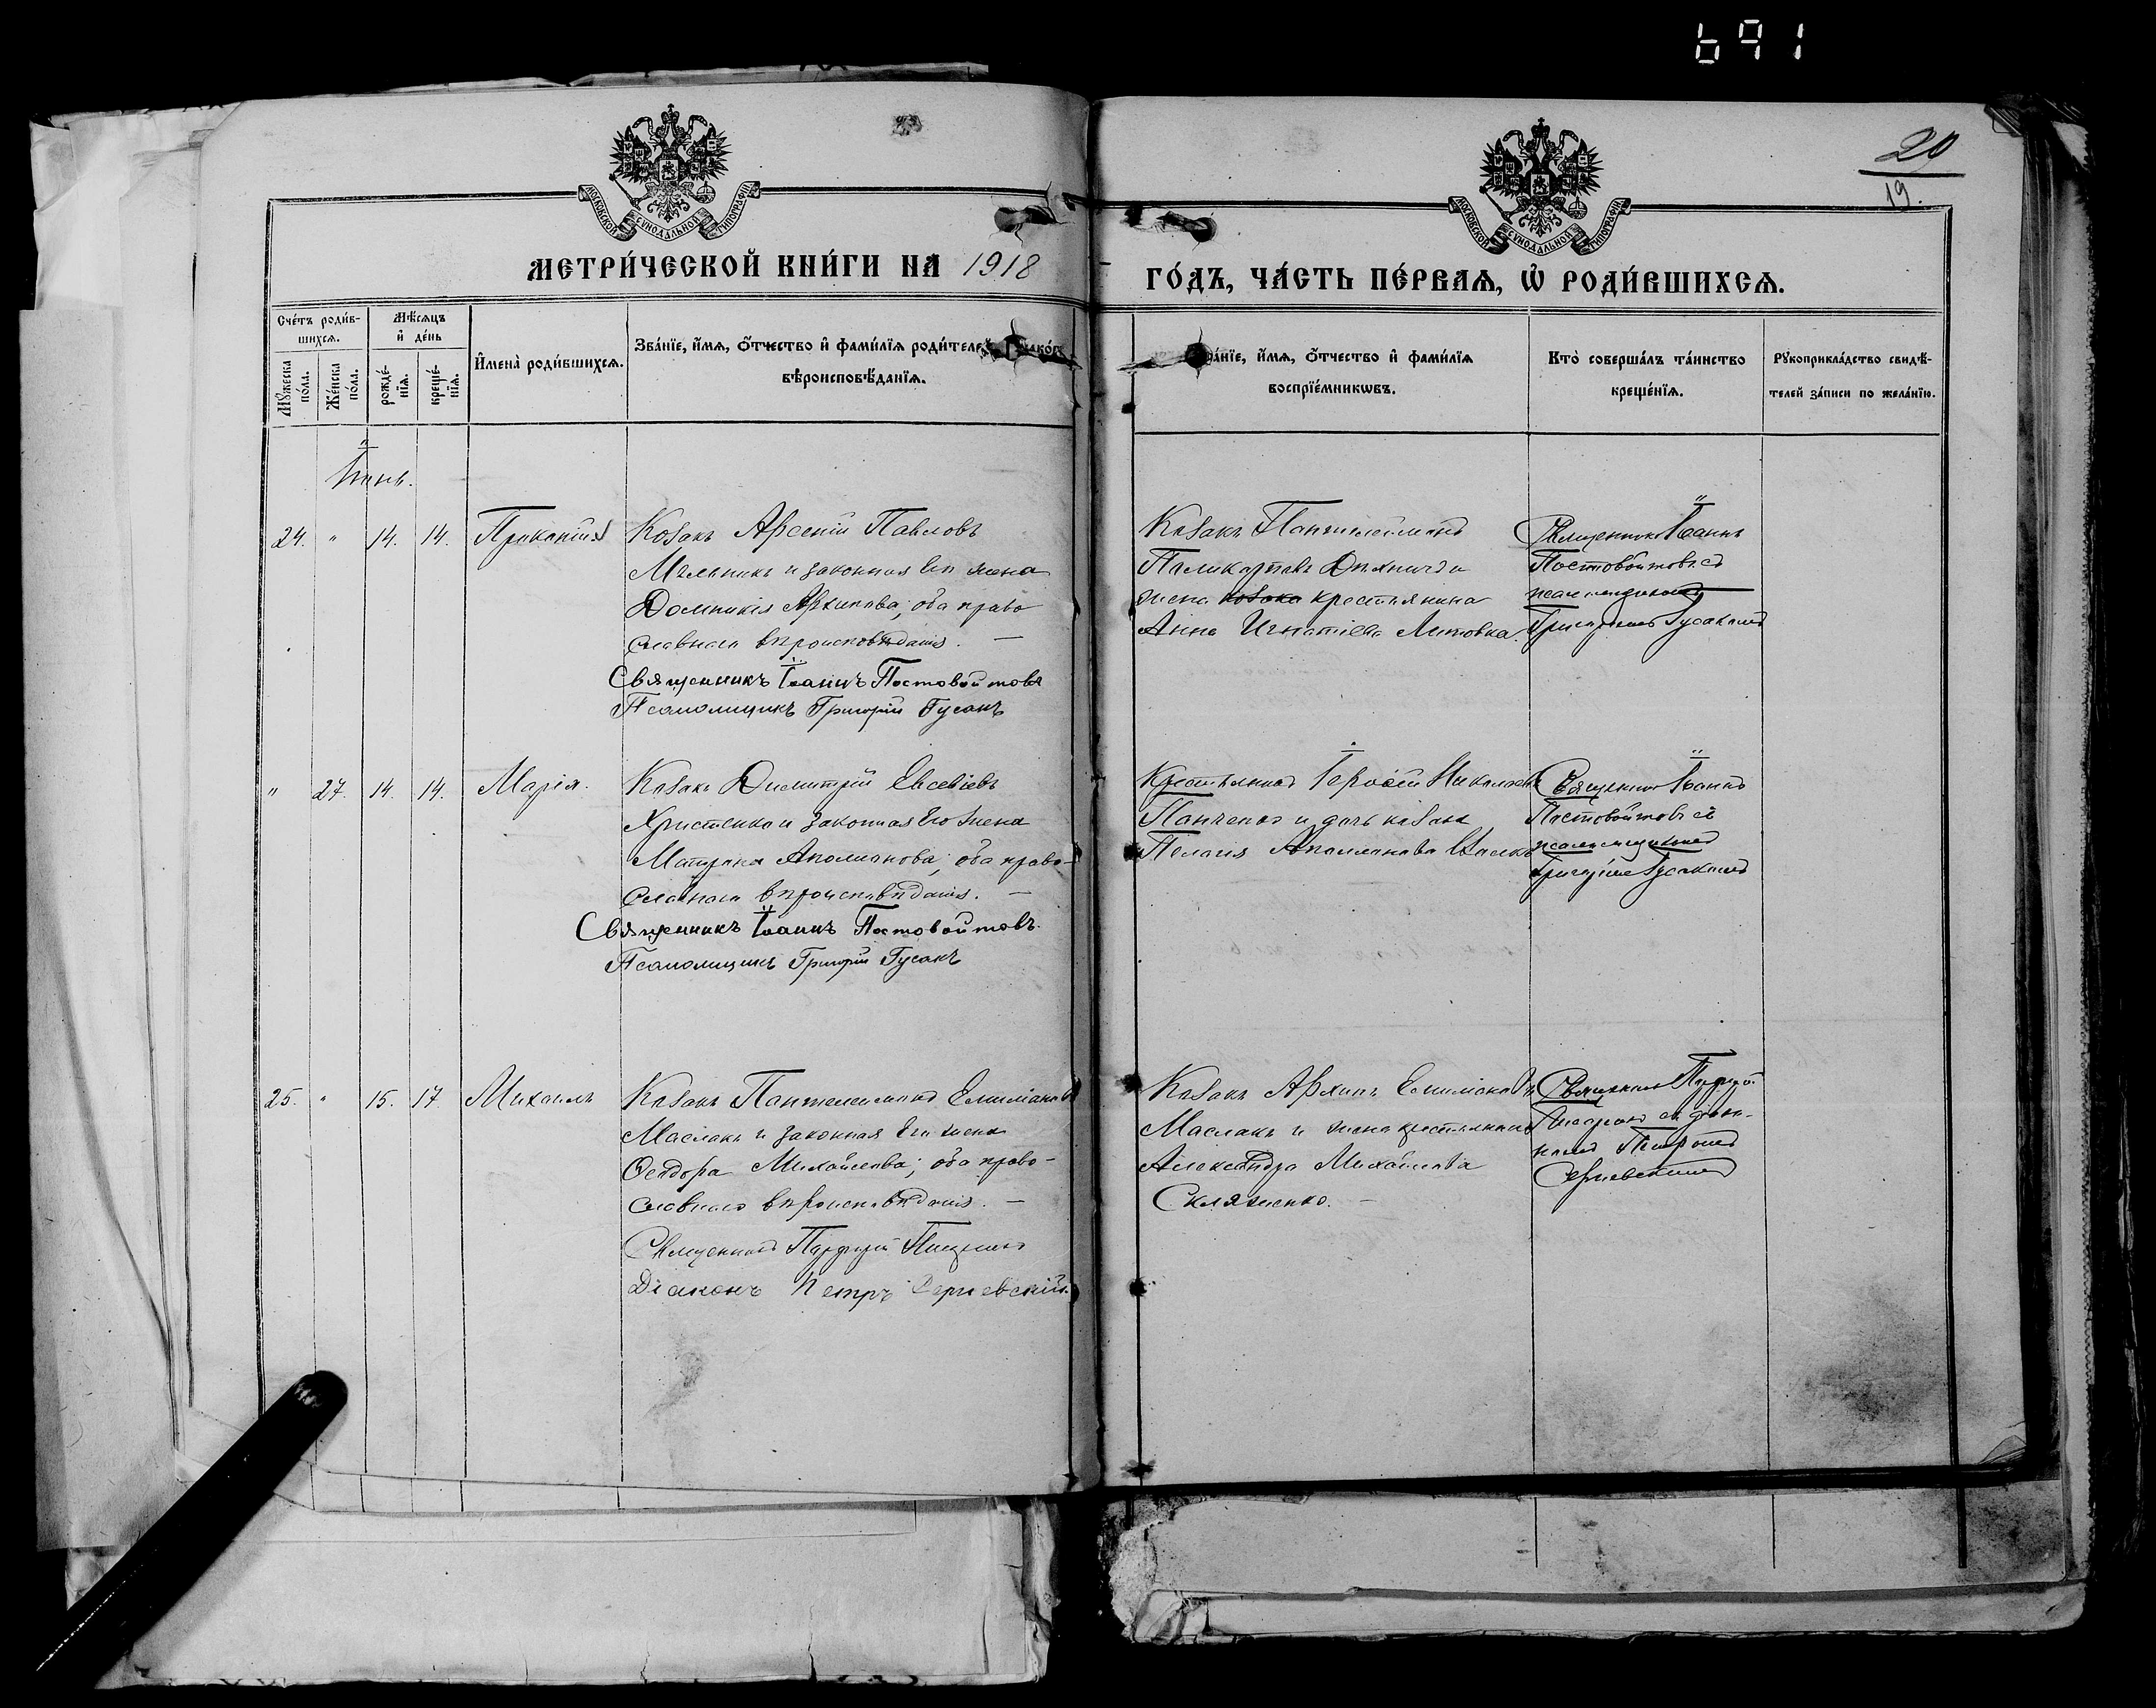 691
20
19.
МОСКОВСКОЙ СУНОДАЛЬНОЙ ТИПОГРАФІИ
МОСКОВСКОЙ СУНОДАЛЬНОЙ ТИПОГРАФІИ
МЕТРИ́ЧЕСКОЙ КНИ́ГИ НА 1918
ГО́ДЪ, ЧА́СТЬ ПЕ́РВАѦ, Ѡ РОДИ́ВШИХСѦ.
Сче́тъ роди́в-
шихсѧ.
Мꙋ́жеска по́ла.
Же́нска по́ла.
Мѣ́сѧцъ
и҆ де́нь
рожде́-
нїѧ.
креще́-
нїѧ.
И҆мена̀ роди́вшихсѧ.
Зва́нїе, и҆́мѧ, ѻ҆́тчество и҆ фами́лїѧ роди́телей,
вѣроисповѣ́данїѧ.
и҆́мѧ, ѻ҆́тчество и҆ фами́лїѧ
воспрїе́мникѡвъ.
Кто̀ соверша́лъ та́инство
креще́нїѧ.
Рꙋкоприкла́дство свидѣ́-
телей за́писи по жела́нїю.
Іюнь.
24. " 14. 14.
Козакъ Арсеній Павловъ
Мельникъ и законная его жена
Домникія Архипова; оба право
славнаго вѣроисповѣданія. —
Священникъ Іоаннъ Постовойтовъ
Псаломщикъ Григорій Гусакъ
Козакъ Пантелеимонъ
Поликарповъ и
жена козака крестьянина
Анна Игнатіева Литовка.
Священникъ Іоаннъ
Постовойтовъ съ
псаломщикомъ
Григоріемъ Гусакомъ
" 27. 14. 14. Марія.
Козакъ Димитрій Евсевіевъ
Христенко и законная его жена
Матрона; оба право-
славнаго вѣроисповѣданія. —
Священникъ Іоаннъ Постовойтовъ.
Псаломщикъ Григорій Гусакъ
Крестьянинъ Николаевъ
Панченко и дочь козака
Пелагія
Священникъ Іоаннъ
Постовойтовъ съ
псаломщикомъ
Григоріемъ Гусакомъ
25. " 15. 17. Михаилъ
Козакъ Пантелеимонъ Емиліановъ
Маслакъ и законная его жена
Ѳеодора Михайлова; оба право-
славнаго вѣроисповѣданія. —
Священникъ
Діаконъ Петръ Сергіевскій.
Козакъ Архипъ Емиліановъ
Маслакъ и жена крестьянина
Александра Михайлова
Скляженко. —
Священникъ
съ діако-
номъ Петромъ
Сергіевскимъ